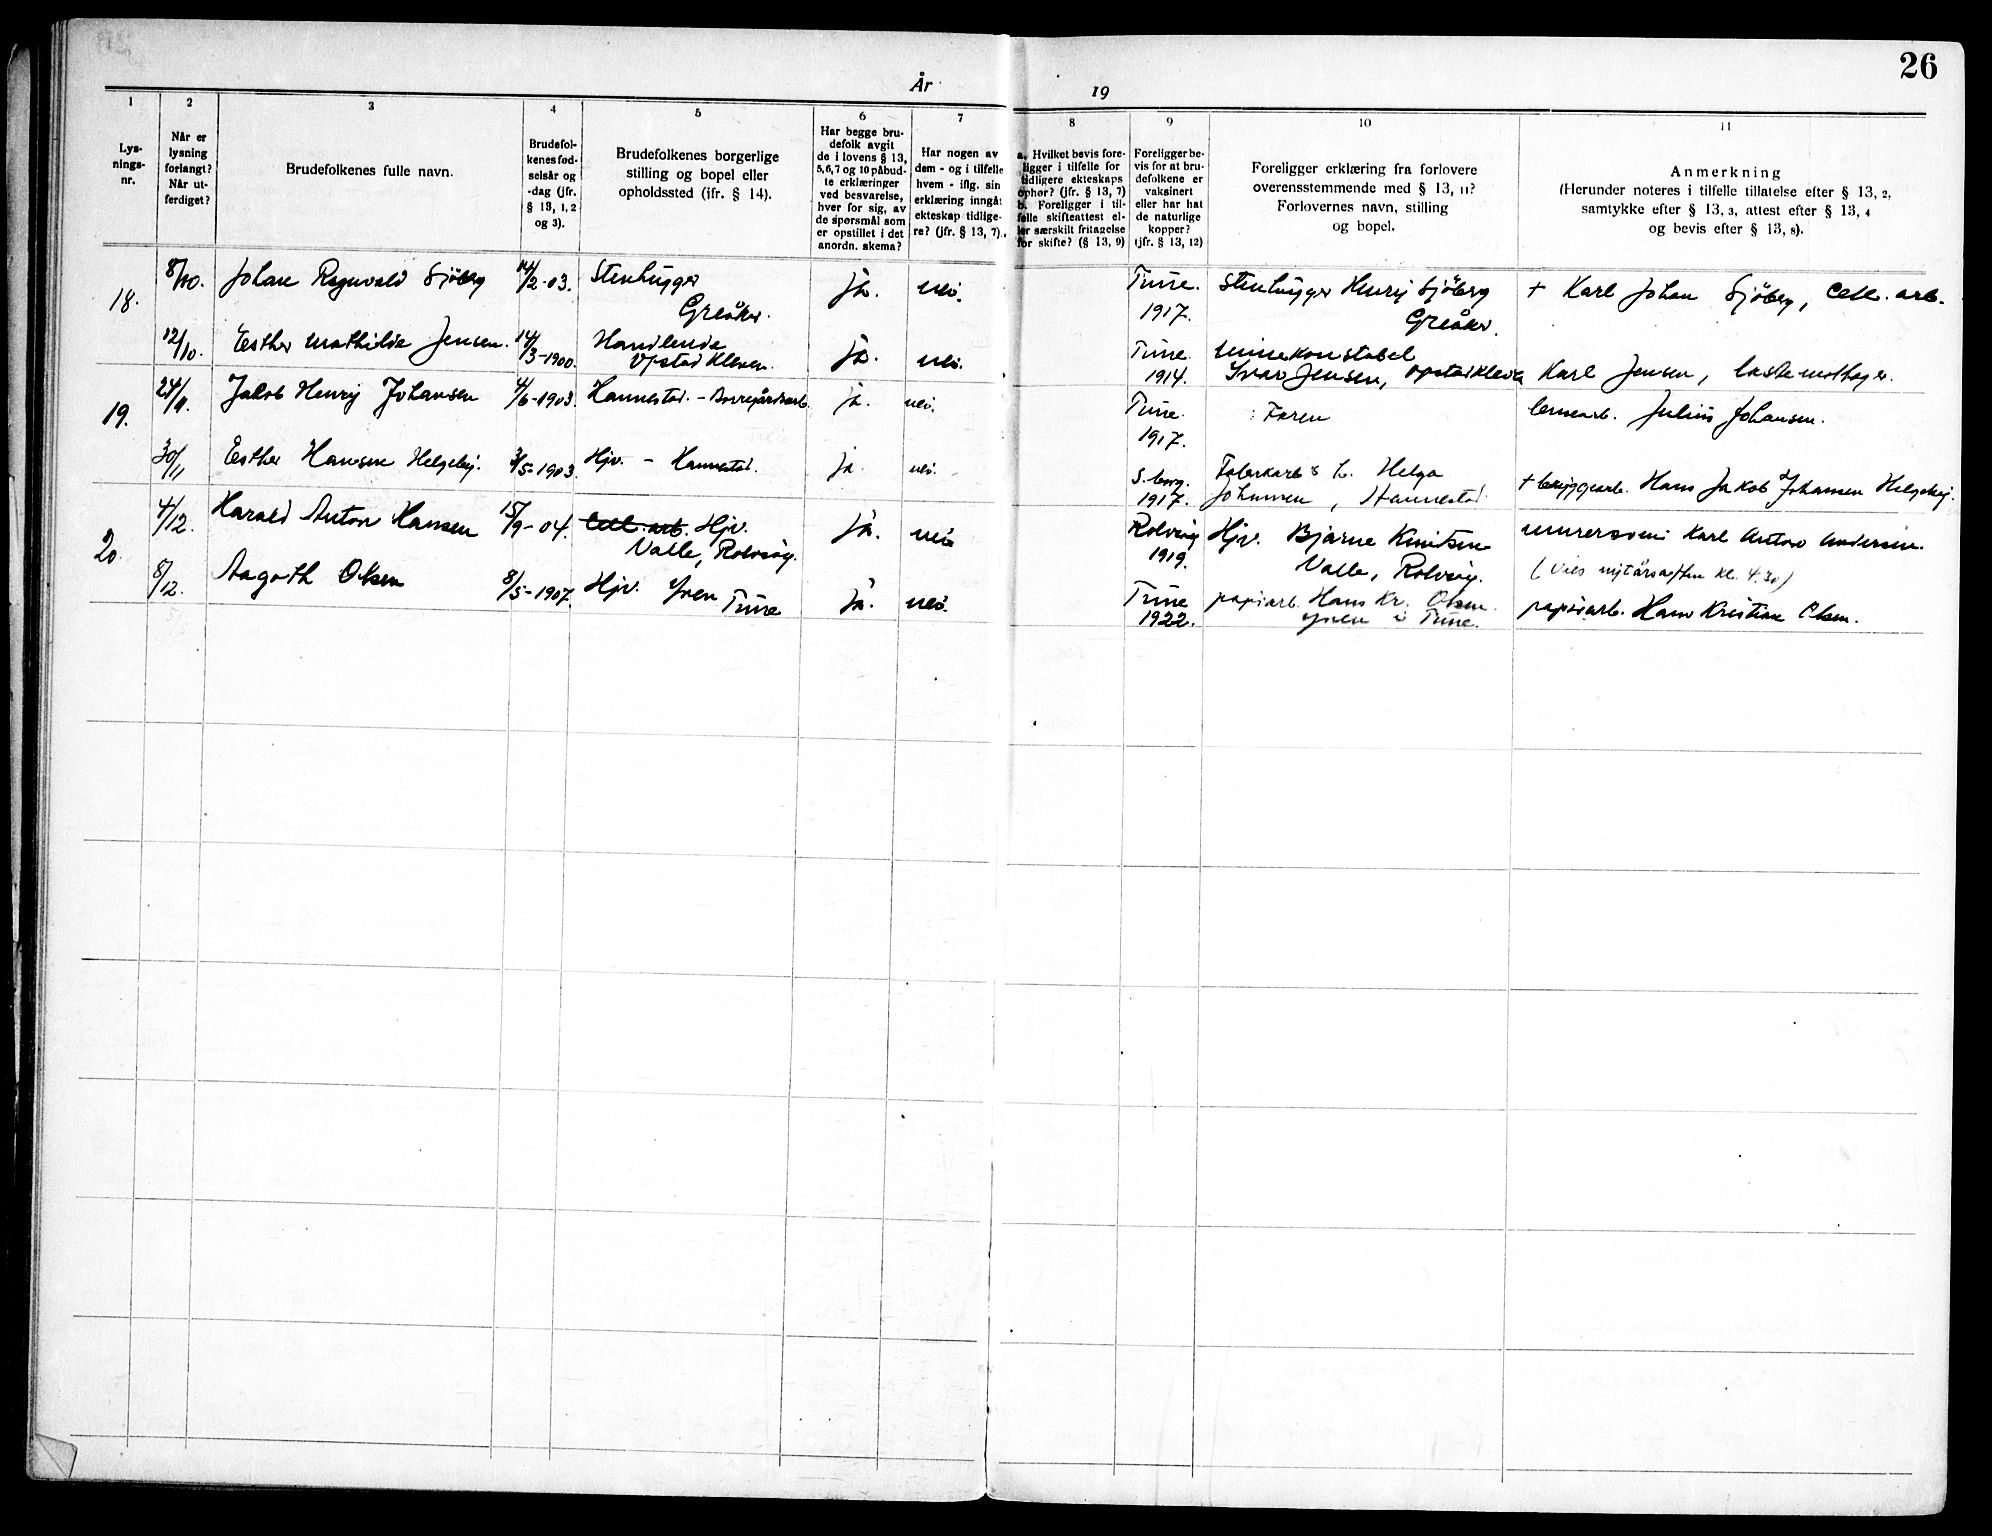 26
År 19
1 2 3 4 5 6 7 8 9 10 11
Lys-
nings-
nr.
Når er
lysning
forlangt?
Når ut-
ferdiget?
Brudefolkenes fulle navn.
Brudefol-
kenes fød-
selsår og
-dag (jfr.
§ 13, 1, 2
og 3).
Brudefolkenes borgerlige
stilling og bopel eller
opholdssted (ifr. § 14).
Har begge bru-
defolk avgit
de i lovens § 13,
5, 6, 7 og 10 påbud-
te erklæringer
ved besvarelse,
hver for sig, av
de spørsmål som
er opstillet i det
anordn. skema?
Har nogen av
dem - og i tilfelle
hvem - iflg. sin
erklæring inngåt
ekteskap tidlige-
re? (jfr. § 13, 7).
a. Hvilket bevis fore-
ligger i tilfelle for
tidligere ekteskaps
ophør? (jfr. § 13, 7)
b. Foreligger i til-
felle skifteattest el-
ler særskilt fritagelse
for skifte? (§ 13, 9)
Foreligger be-
vis for at bru-
defolkene er
vaksinert
eller har hat
de naturlige
kopper?
(jfr. § 13, 12)
Foreligger erklæring fra forlovere
overensstemmende med § 13, 11?
Forlovernes navn, stilling
og bopel.
Anmerkning
(Herunder noteres i tilfelle tillatelse efter § 13, 2,
samtykke efter § 13, 3, attest efter § 13, 4
og bevis efter § 13, 8).
18.
8/10. Johan Ragnvald Sjöberg 14/2-03. Stenhugger
Greåker. ja. nei. Tune.
1917. Stenhugger Henry Sjöberg
Greåker. + Karl Johan Sjöberg, Cell. arb.
12/10. Esther Mathilde Jensen. 14/3-1900. Handlende
Opstad Kleven. ja. nei. Tune.
1914. Minekonstabel
Ivar Jensen, Opstad Kleven Karl Jensen, lastemottager.
19.
24/11. Jakob Henry Johansen 4/6-1903. Hannestad. - Borregårdsarb. ja. nei. Tune.
1917. Faren Julius Johansen.
30/11 Esther Hansen Helgeby. 3/5-1903. Hjv. - Hannestad. ja. nei. S.borg.
1917. Helga
Johansen, Hannestad. + bryggearb. Hans Jakob Johansen Helgeby.
20
4/12. Harald Anton Hansen 15/9-04. Cell. arb. Hjv.
Valle, Rolvsøy. ja. nei Rolvsøy
1919. Hjv. Bjarne Knutsen
Valle, Rolvsøy. murersvend Karl Anton Andersen.
(Vies nytårsaften kl. 4.30)
8/12. Aagoth Olsen 8/5-1907. Hjv. Yven
Tune ja. nei. Tune
1922. papirarb. Hans Kr. Olsen.
Yven i Tune. papirarb. Hans Kristian Olsen.